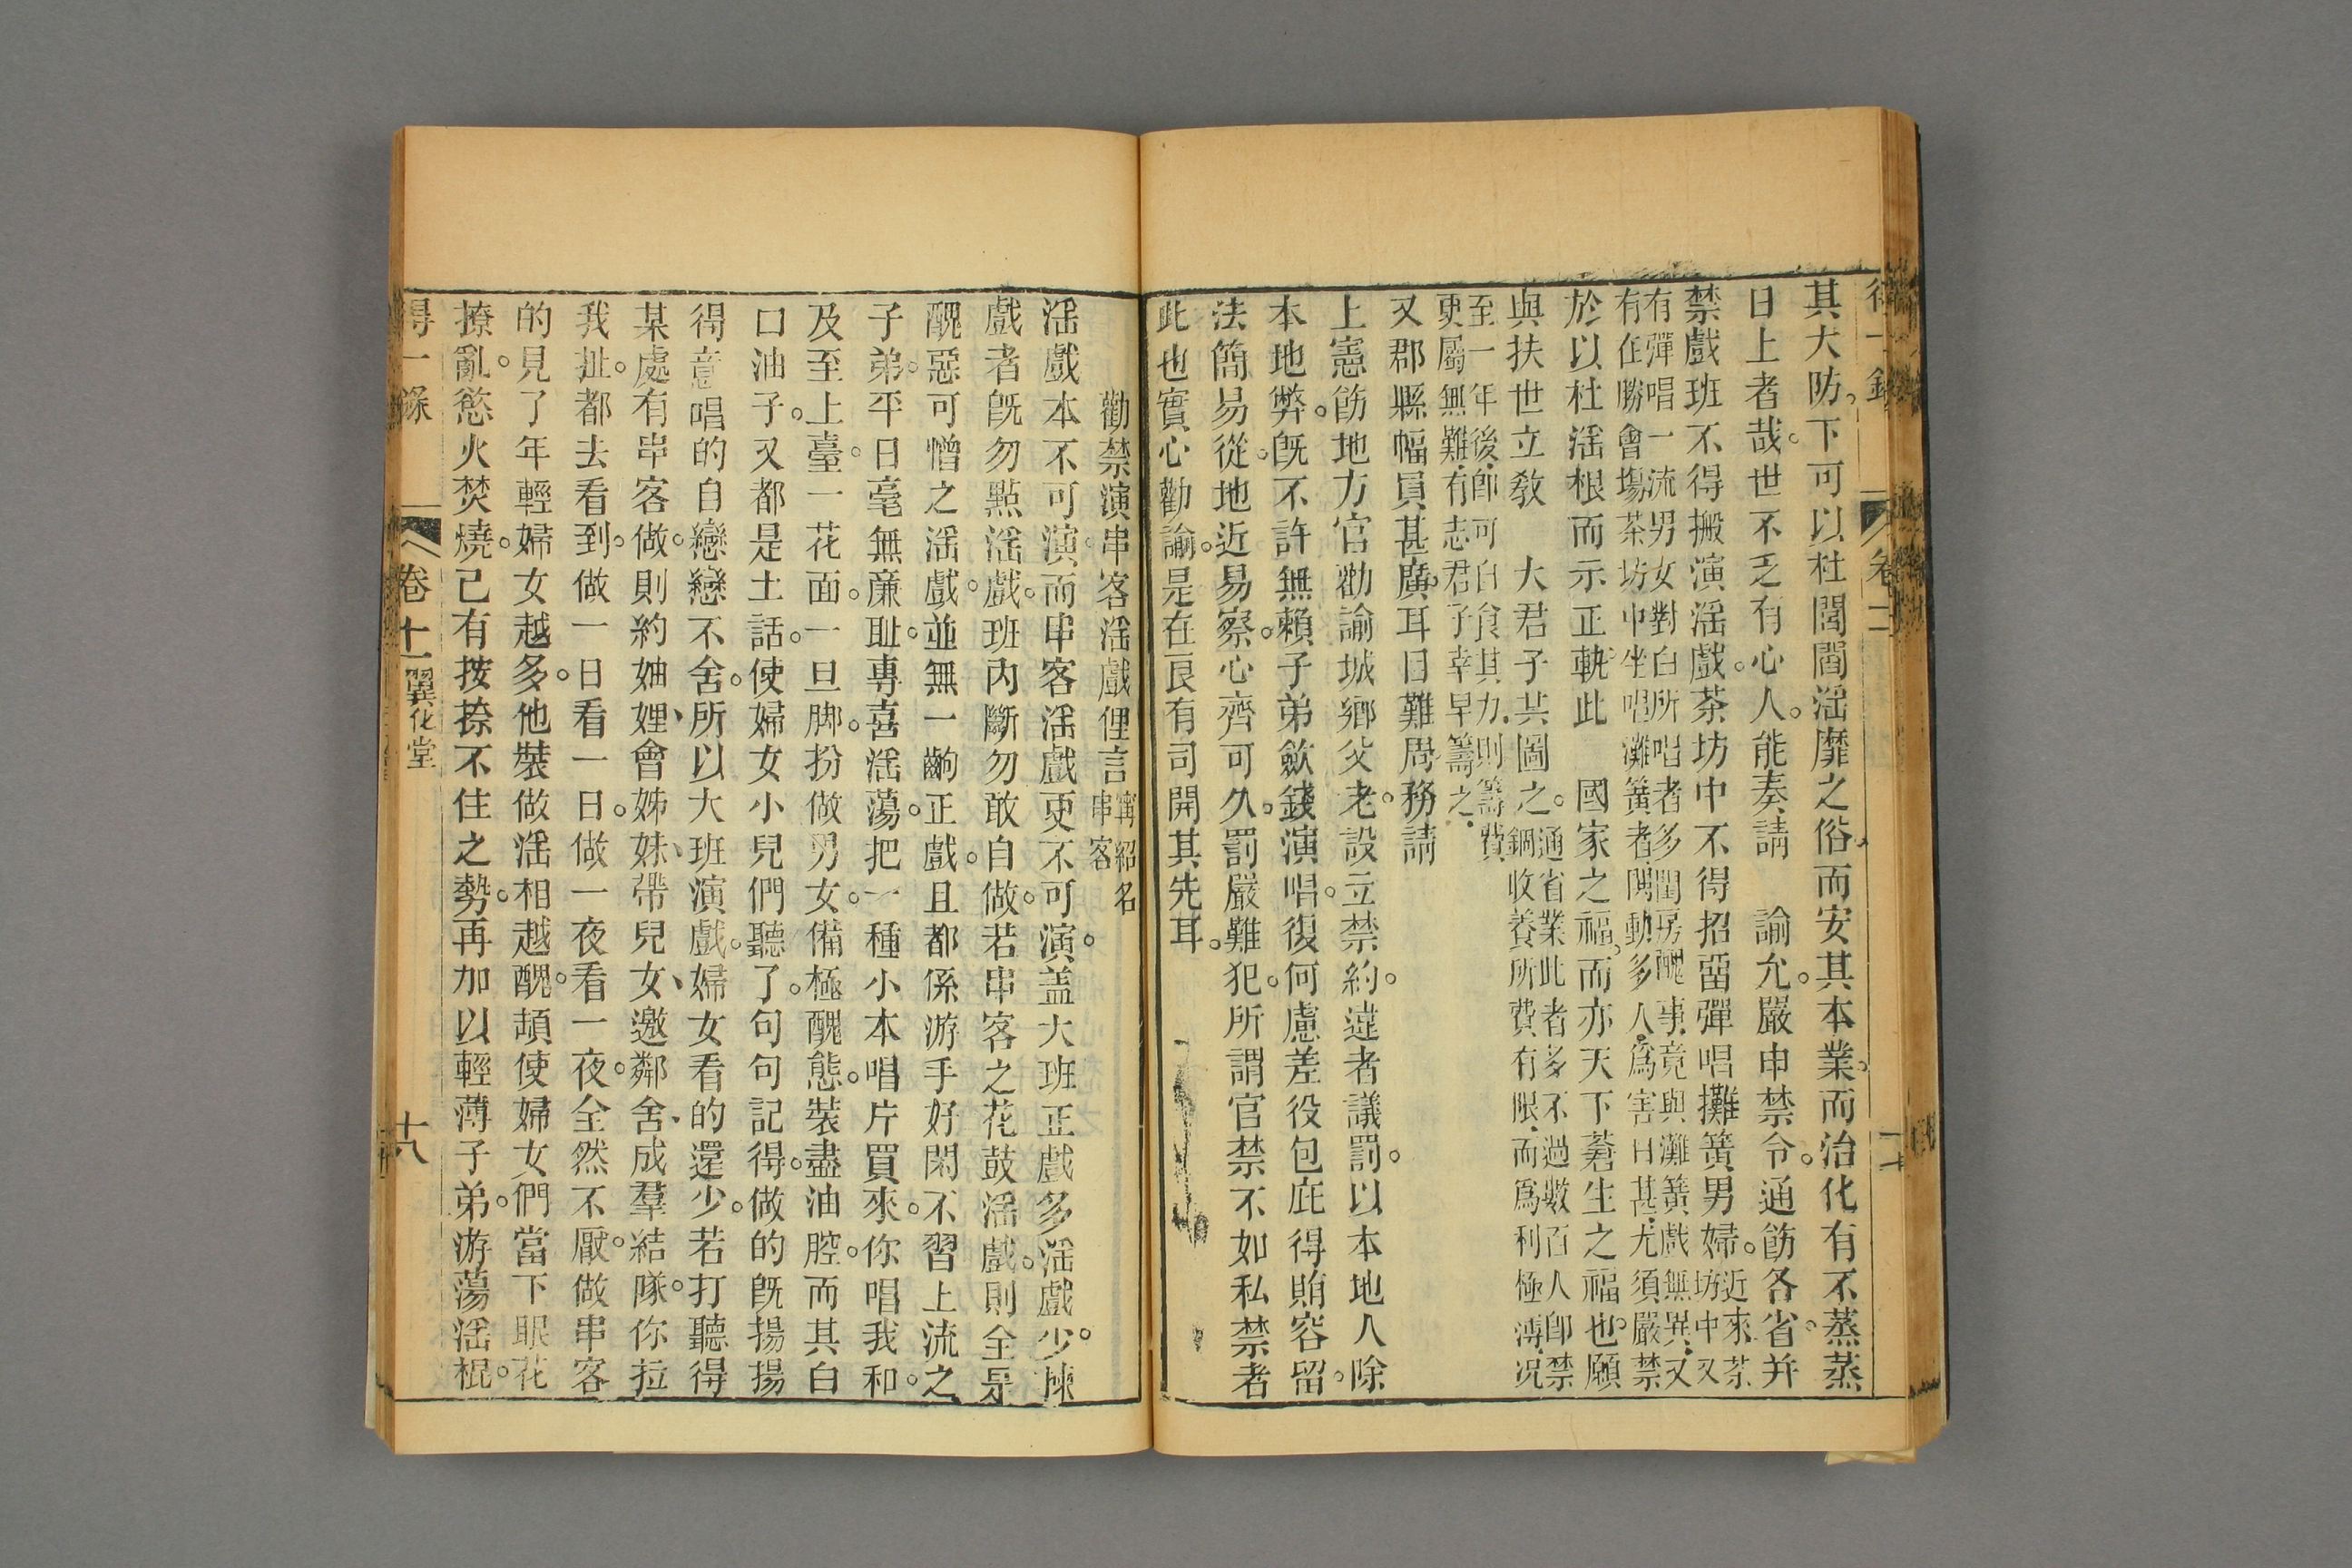 其大防。下可以杜閭閻淫靡之俗。而安其本業。而治化有不蒸蒸
日上者哉。世不乏有心人。能奏請　諭允。嚴申禁令。通飭各省。并
禁戲班不得搬演淫戲。茶坊中不得招畱彈唱攤簧男婦。近來茶坊中又
有彈唱一流男女對白所唱者多閨房醜事竟與灘簧戲無異又
有在勝會塲茶坊中坐唱灘簧者隅動多人爲害日甚尤須嚴禁
於以杜淫根而示正軌此　國家之福。而亦天下蒼生之福也。願
與扶世立教　大君子共圖之。通省業此者多不過數百人卽禁錮收養所費有限而爲利極溥况
至一年後卽可自食其力則籌費
更屬無難有志君子幸早籌之
又郡縣幅員甚廣。耳目難周。務請
上憲飭地方官勸諭城鄉父老。設立禁約。違者議罰。以本地人除
本地弊。旣不許無賴子弟歛錢演唱。復何慮差役包庇得賄容留。
法簡易從。地近易察。心齊可久。罰嚴難犯。所謂官禁不如私禁者
此也實心勸諭。是在良有司開其先耳。
勸禁演串客淫戲俚言 甯紹名串客
淫戲本不可演。而串客淫戲更不可演。盖大班正戲多淫戲少。揀
戲者旣勿點淫戲。班內斷勿敢自做。若串客之花鼓淫戲。則全是
醜惡可憎之淫戲。並無一齣正戲。且都係游手好閑不習上流之
子弟。平日毫無廉耻。專喜淫蕩。把一種小本唱片買來。你唱我和。
及至上臺。一花面。一旦脚。扮做男女。備極醜態。裝盡油腔。而其白
口油子。又都是土話。使婦女小兒們聽了。句句記得。做的旣揚揚
得意唱的自戀戀不舍。所以大班演戲。婦女看的還少。若打聽得
某處有串客做。則約妯娌、會姊妹、帶兒女、邀鄰舍、成羣結隊。你拉
我扯。都去看到。做一日看一日。做一夜看一夜。全然不厭。做串客
的見了年輕婦女越多。他裝做淫相越醜。頓使婦女們當下眼花
撩亂。慾火焚燒。己有按捺不住之勢。再加以輕薄子弟。游蕩淫棍。
得一錄　卷十一　翼化堂　十八